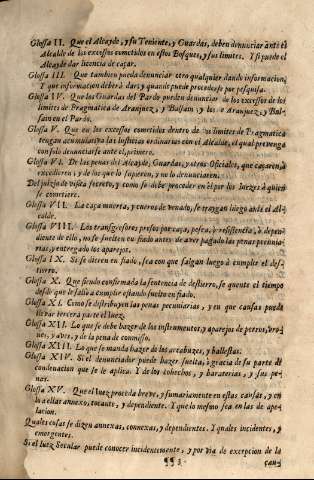 Glossa II. Que el Alcayde, y su Teniente, y Guardas, deben denunciar ante el
Alcalde de los excessos cometidos en estos Bosques, y sus limites. Y si puede el
Alcayde dar licencia de caçar.
Glossa III. Que tambien pueda denunciar otro qualquier dando informacion,
Y que informacion deberà dar; y quando puede procederse por pesquisa.
Glossa IV. Que los Guardas del Pardo pueden denunciar de los excessos de los
limites de Pragmatica de Aranjuez, y Balsain y los de Aranjuez, y Bal-
sain en el Pardo.
Glossa V. Que en los excessos cometidos dentro de los limites de Pragmatica
tengan acumulativa las Iusticias ordinarias con el Alcalde, el qual prevenga
conosido denunciarse ante el, primero.
Glossa VI. De las penas del Alcayde, Guardas, y otros Oficiales, que caçaren, ò
excedieren, y de los que lo supieren, y no lo denunciaren.
Del juizio de visita secreto, y como se debe proceder en èl por los Iuezes à quien
se cometiere.
Glossa VII. La caça muerta, y cueros de venado, se traygan luego ante el Al-
calde.
Glossa VIII. Los transgressores presos por caça, pesca, ò resistencia, ò depen-
diente de ello, no se suelten en fiado antes de aver pagado las penas pecunia-
rias, y entregado los aparejos.
Glossa IX. Si se dieren en fiado, sea con que salgan luego à cumplir el des-
tierro.
Glossa X. Que siendo confirmada la sentencia de destierro, se quente el tiempo
desde que le saliò à cumplir estando suelto en fiado.
Glossa XI. Como se distribuyen las penas pecuniarias, y en que causas puede
llevar tercera parte el Iuez.
Glossa XII. Lo que se debe hazer de los instrumentos, y aparejos de perros, huro-
nes, y aves, y de la pena de comisso.
Glossa XIII. Lo que se manda hazer de los arcabuzes, y ballestas.
Glossa XIV. Si el denunciador puede hazer suelta, ò gracia de su parte de
condenacion que se le aplica. Y de los cohechos, y baraterias, y sus pe-
nas.
Glossa XV. Que el Iuez proceda breve, y sumariamente en estas causas, y en
lo à ellas annexo, tocante, y dependiente. Y que lo mesmo sea en las de ape-
lacion.
Quales cosas se dizen annexas, connexas, y dependientes. Y quales incidentes, y
emergentes.
Si el Iuez Secular puede conocer incidentemente, y por via de excepcion de la
cau-